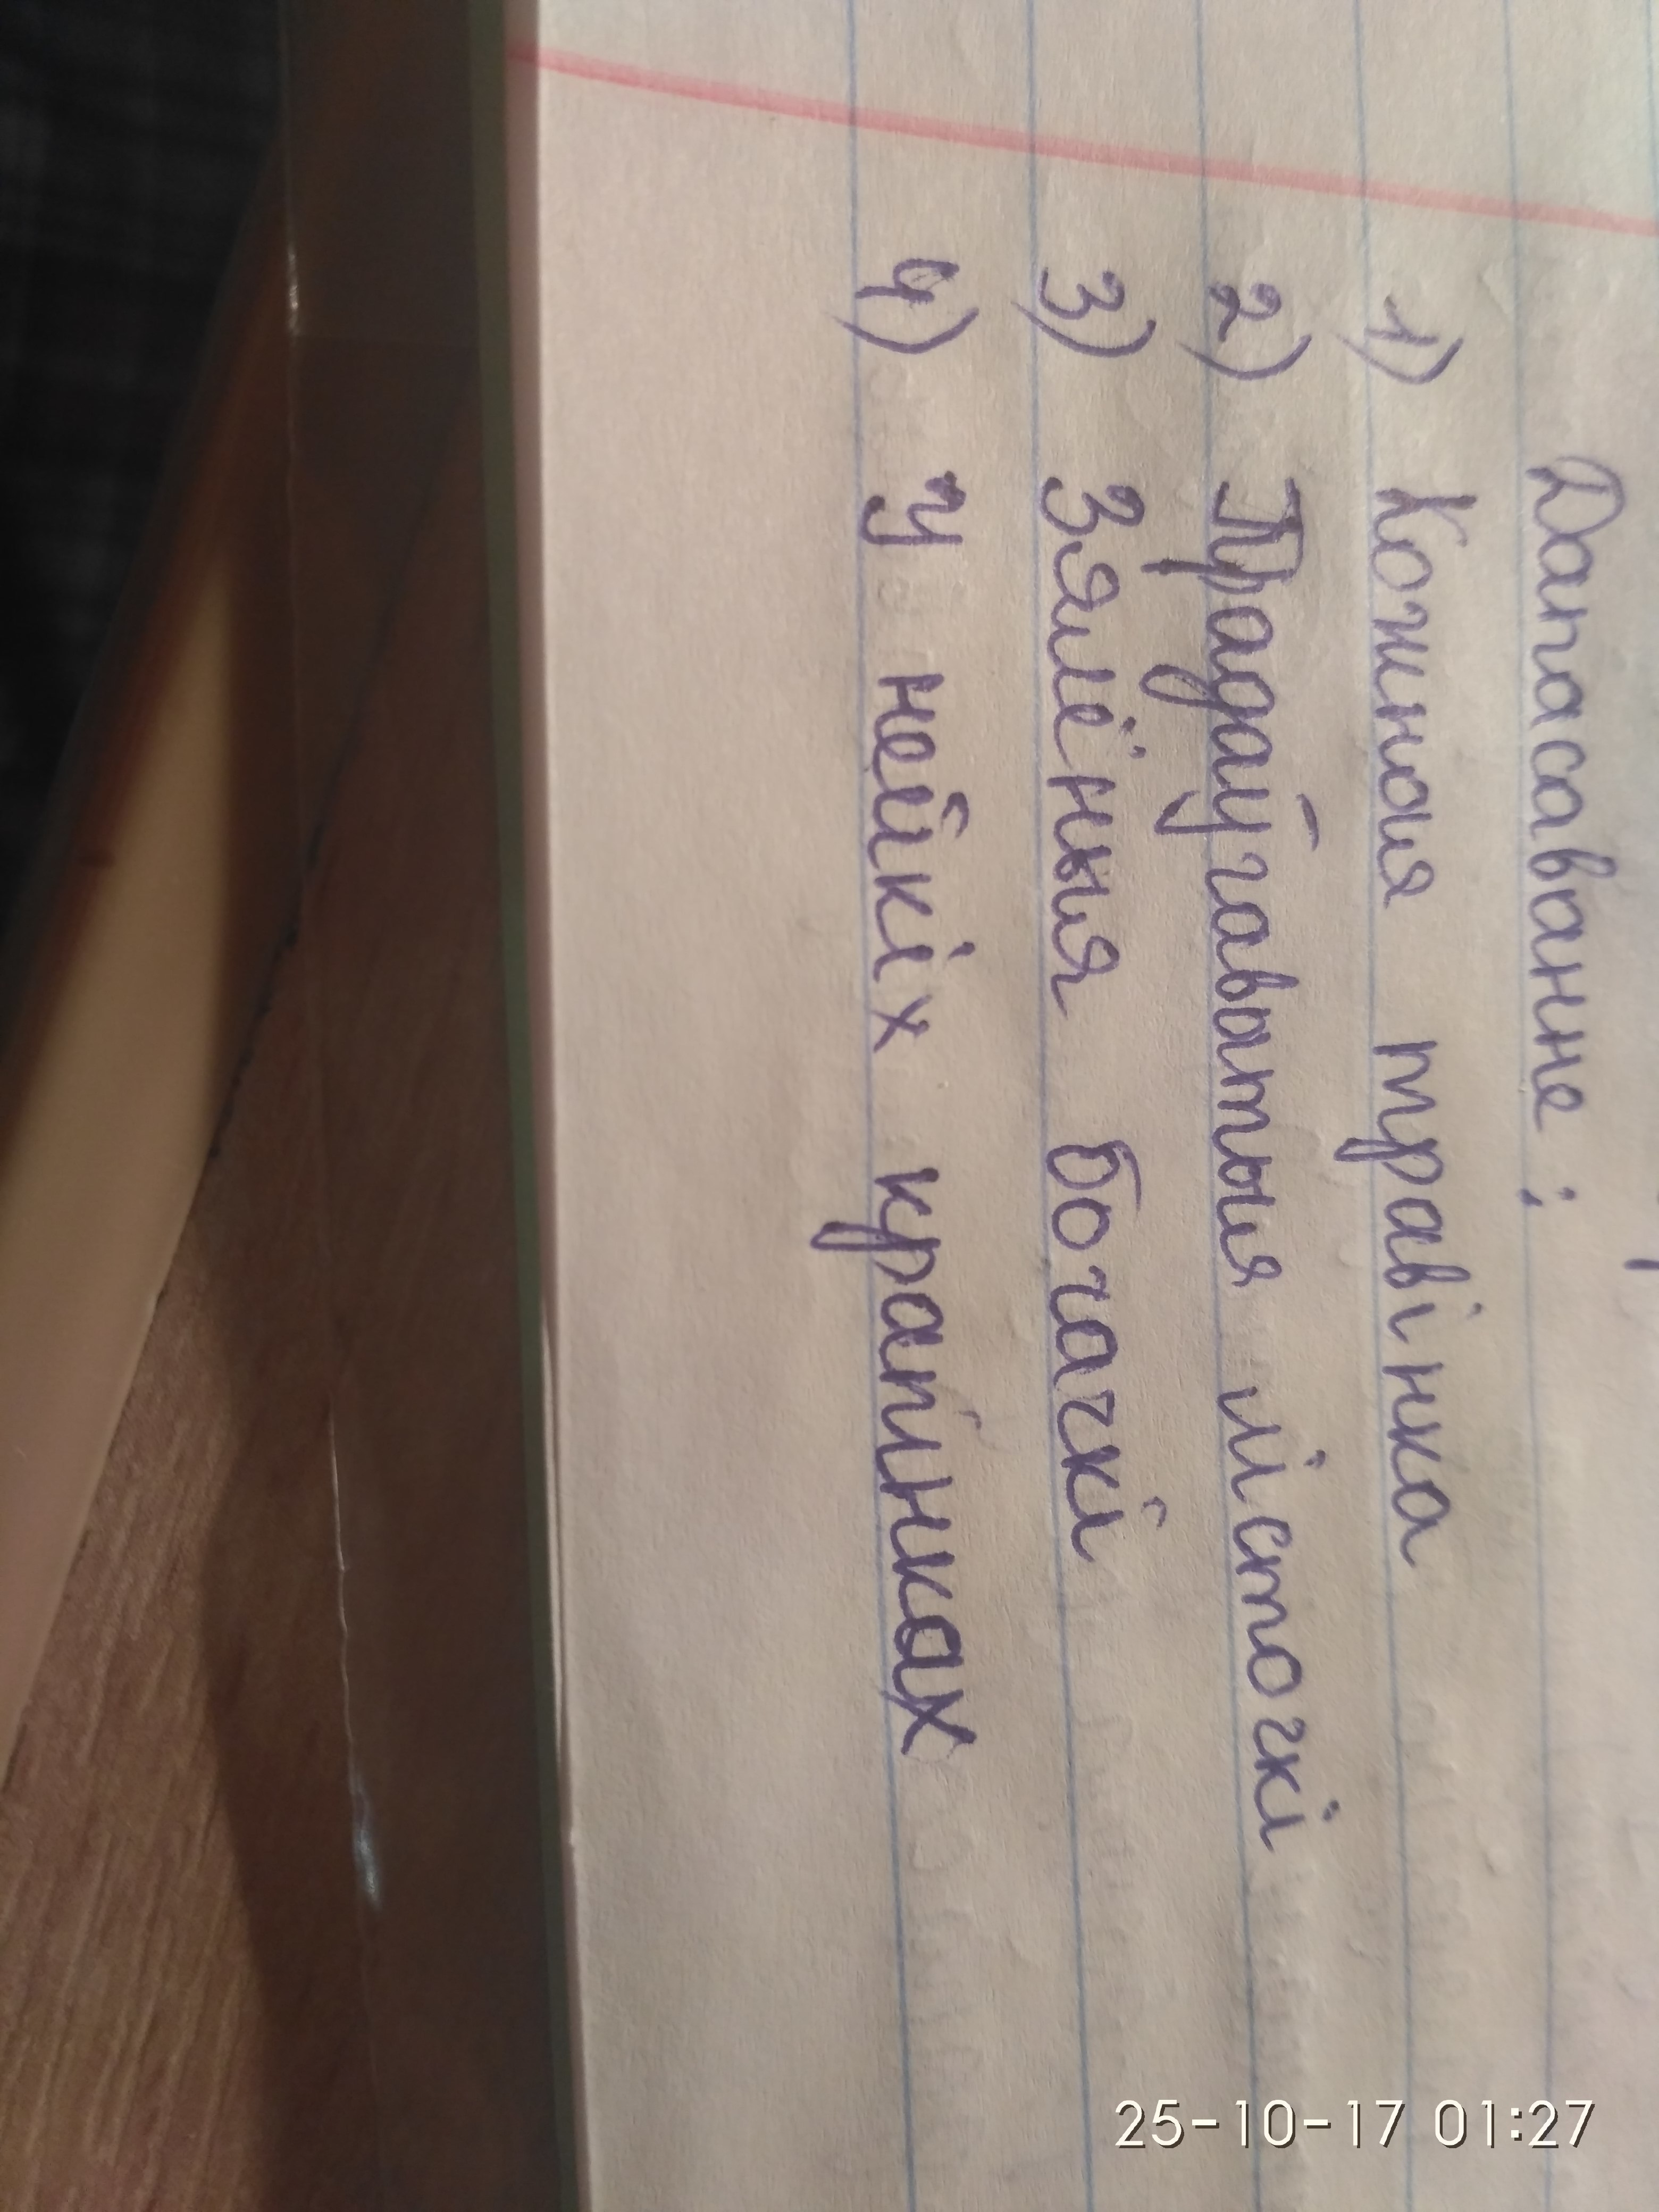 Дапасаванне:
1) Кожная травінка
2) Прадаўгаватыя лісточкі
3) Зялёныя бочачкі
4) У нейкіх крапінках
25-10-17 01:27